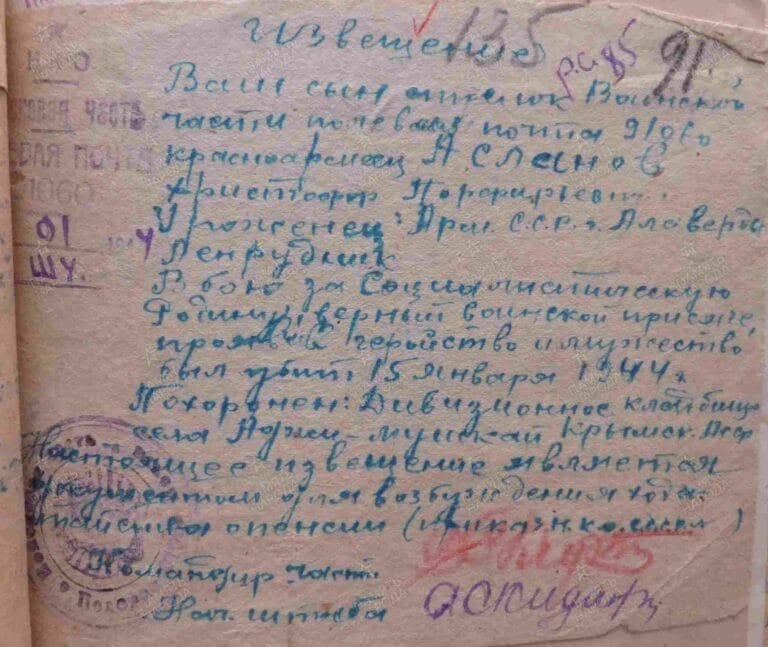 Извещение
135
р.с. 85
91.
Н О
часть
почта
01
шу.
Ваш сын стрелок Воинской
части полевая почта 91060
красноармеец Асланов
христофор Порфирьевич
Уроженец: Арм. С.С.Р. г. Алаверди
Ленрудник
В бою за Социалистическую
Родину, верный воинской присяге,
проявив геройство и мужество
был убит 15 января 1944 г
Похоронен: Дивизионное кладбище
села Аджи-мушкай Крымск. Асср
Настоящее извещение является
документом для возбуждения хода-
тайства о пенсии (приказ нко. ссср )
Командир части
Нач. штаба